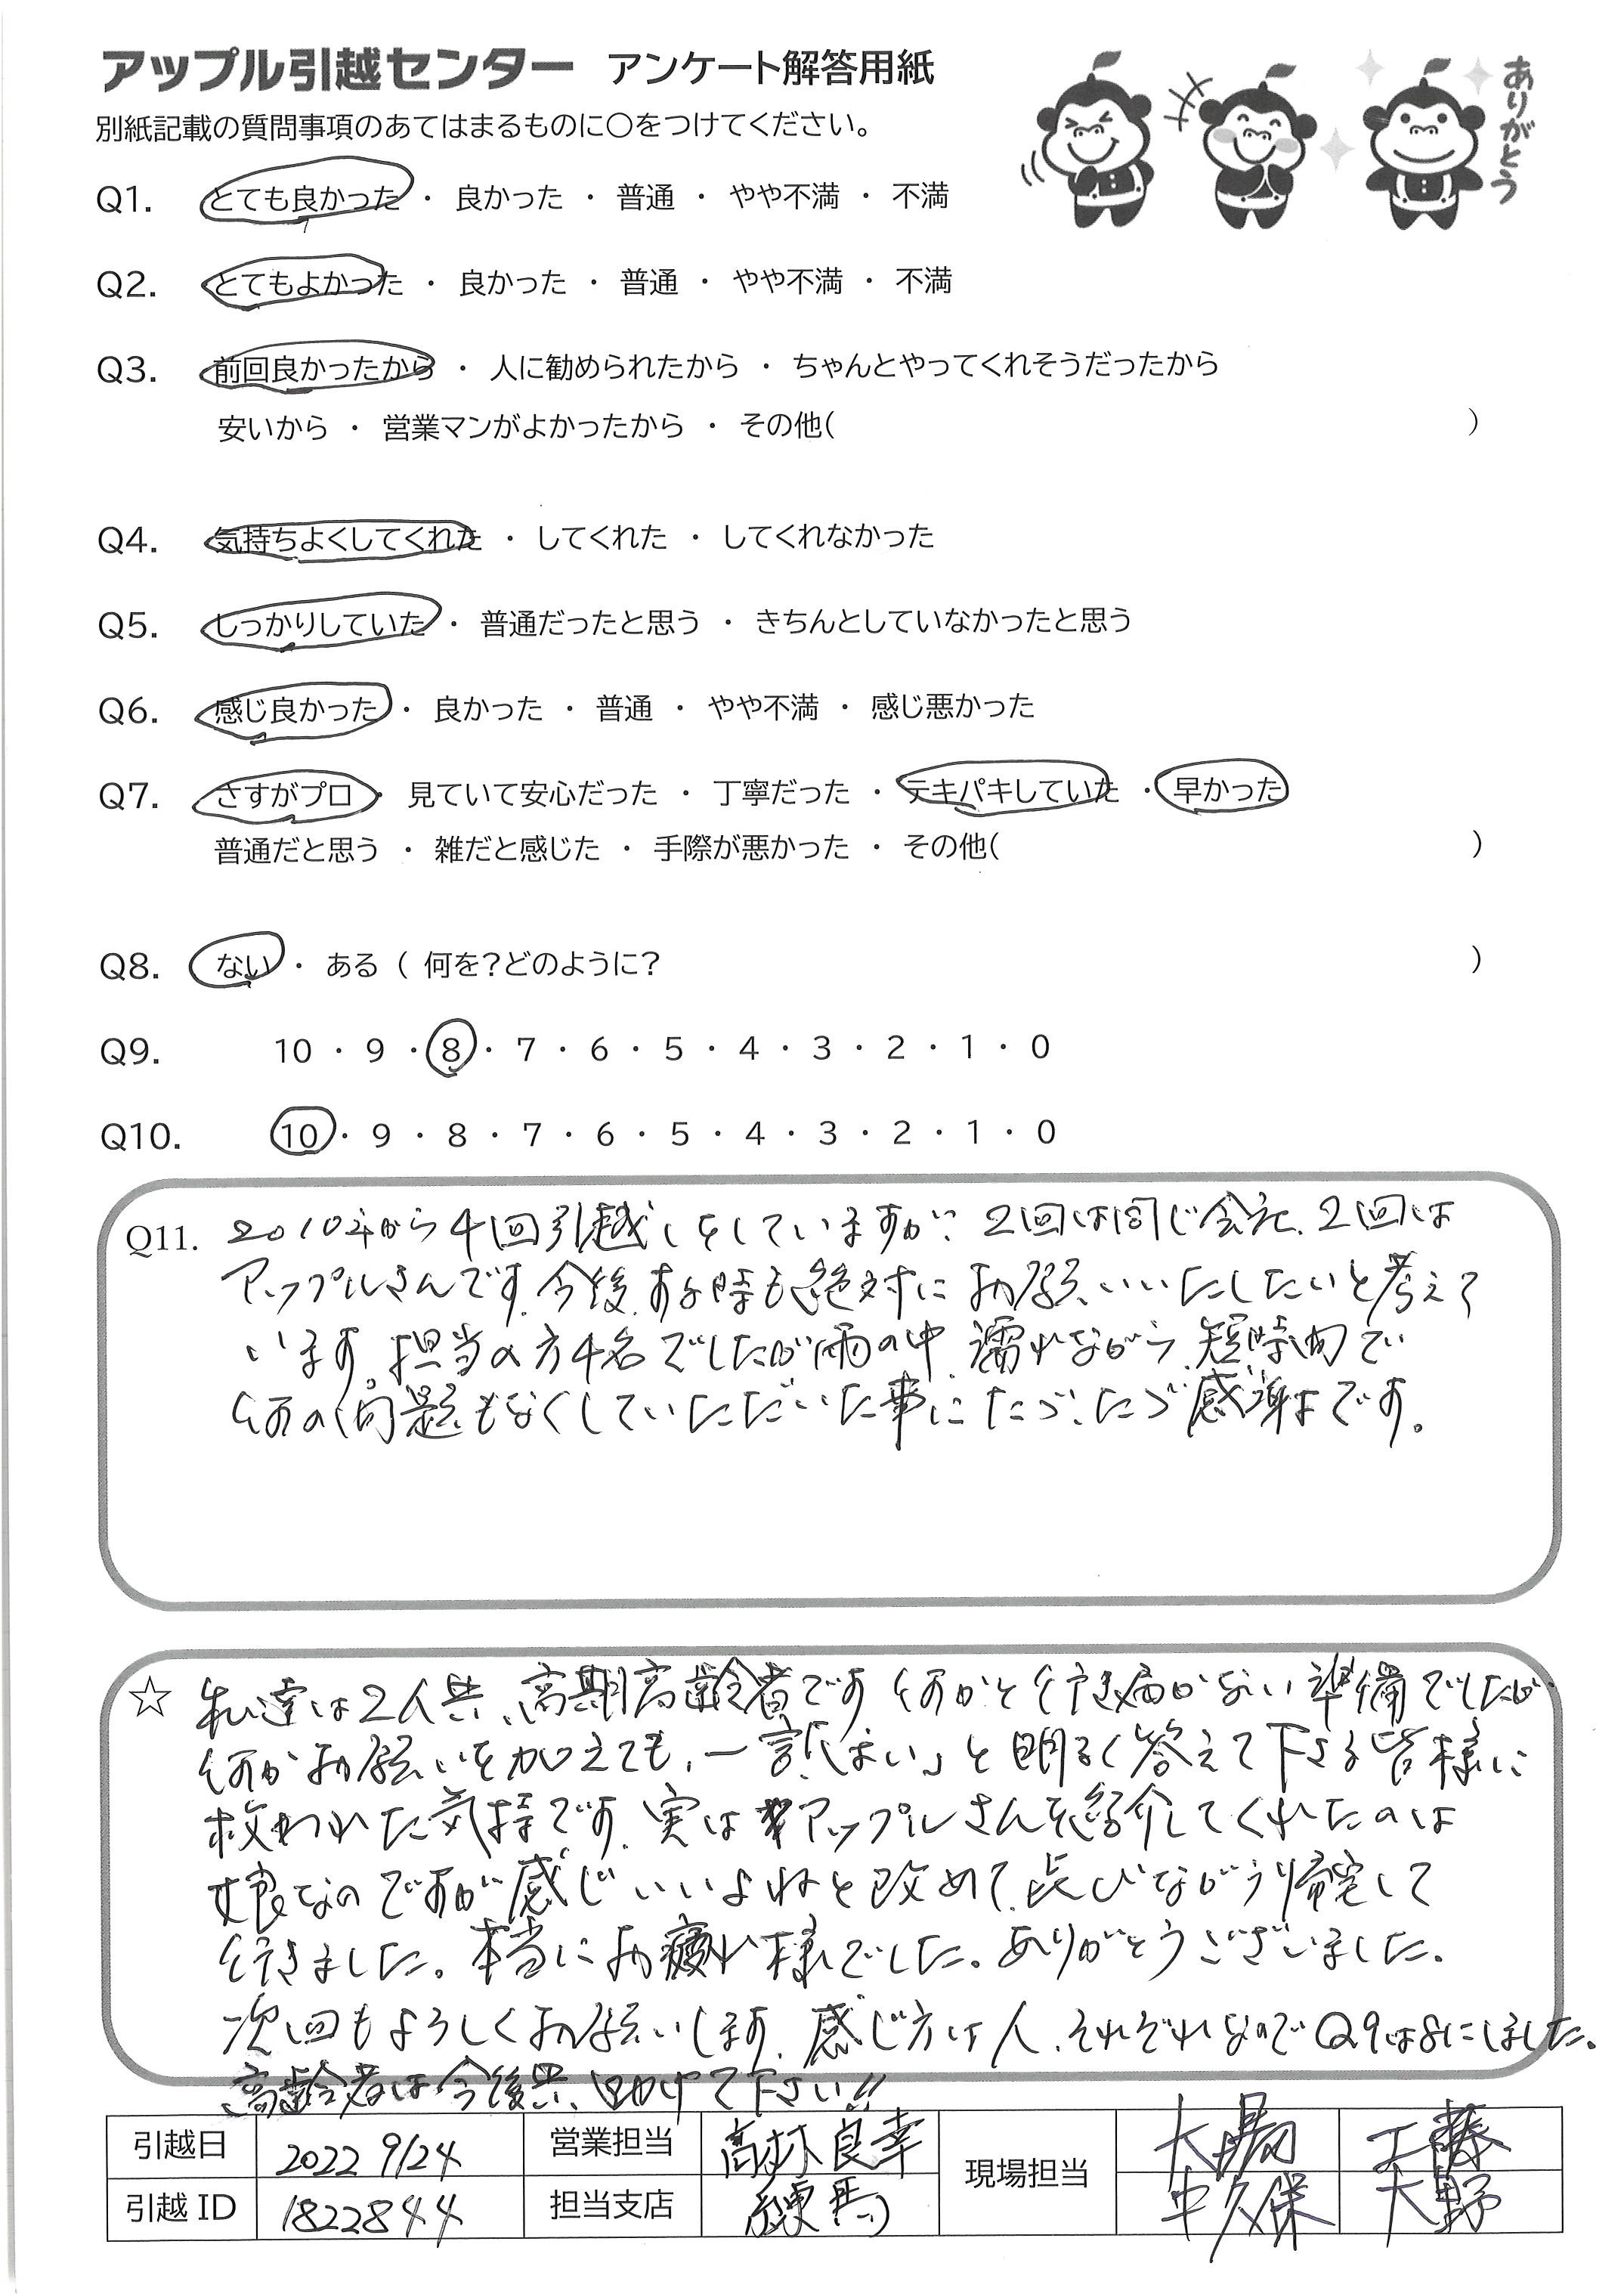 アップル引越センター アンケート解答用紙
ありがとう
別紙記載の質問事項のあてはまるものに○をつけてください。
Q1. とても良かった ・ 良かった ・ 普通 ・ やや不満 ・ 不満
Q2. とてもよかった ・ 良かった ・ 普通 ・ やや不満 ・ 不満
Q3. 前回良かったから ・ 人に勧められたから ・ ちゃんとやってくれそうだったから
安いから ・ 営業マンがよかったから ・ その他( )
Q4. 気持ちよくしてくれた ・ してくれた ・ してくれなかった
Q5. しっかりしていた ・ 普通だったと思う ・ きちんとしていなかったと思う
Q6. 感じ良かった ・ 良かった ・ 普通 ・ やや不満 ・ 感じ悪かった
Q7. さすがプロ ・ 見ていて安心だった ・ 丁寧だった ・ テキパキしていた ・ 早かった
普通だと思う ・ 雑だと感じた ・ 手際が悪かった ・ その他( )
Q8. ない ・ ある ( 何を?どのように? )
Q9. 10 ・ 9 ・ 8 ・ 7 ・ 6 ・ 5 ・ 4 ・ 3 ・ 2 ・ 1 ・ 0
Q10. 10 ・ 9 ・ 8 ・ 7 ・ 6 ・ 5 ・ 4 ・ 3 ・ 2 ・ 1 ・ 0
Q11. 2010年から4回引越しをしていますが、2回は同じ会社、2回は
アップルさんです。今後、ある時も絶対にお願いいたしたいと考えて
います。担当の方4名でしたが雨の中、濡れながら、短時間で
何の問題もなくしていただいた事にただ、ただ感謝です。
☆ 私達は2人共、高期高齢者です 何かと行き届かない準備でしたが
何かお願いを加えても、一言「はい」と明るく答えて下さる皆様に
救われた気持です。実はアップルさんを紹介してくれたのは
娘なのですが感じいいよねと改めて、喜びながら帰宅して
行きました。本当にお疲れ様でした。ありがとうございました。
次回もよろしくお願いします。感じ方は人、それぞれなのでQ9は8にしました。
高齢者は今後共、助けて下さい!!
引越日 2022 9/24 営業担当 高林良幸 現場担当 工藤
引越ID 1822844 担当支店 練馬 中久保 大野